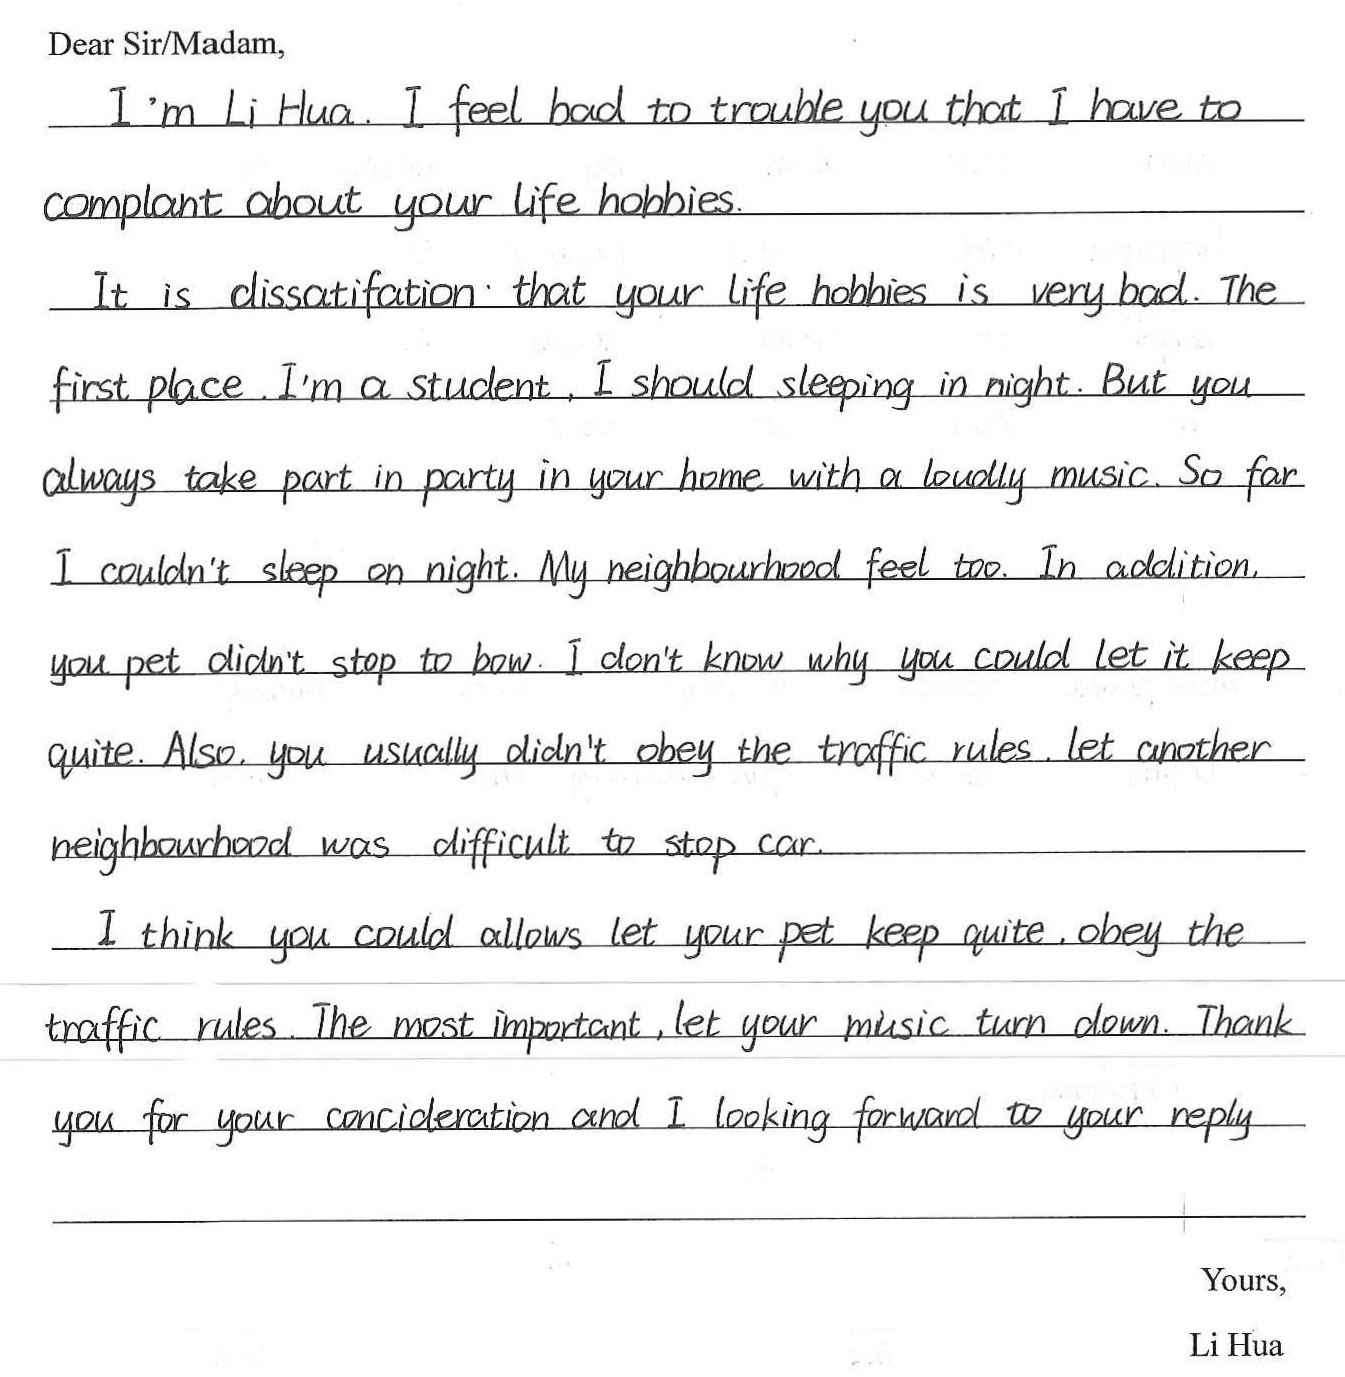 Dear Sir/Madam,
I'm Li Hua. I feel bad to trouble you that I have to
complant about your life hobbies.
It is dissatifation that your life hobbies is very bad. The
first place. I'm a student, I should sleeping in night. But you
always take part in party in your home with a loudly music. So far
I couldn't sleep on night. My neighbourhood feel too. In addition,
you pet didn't stop to bow. I don't know why you could let it keep
quite. Also, you usually didn't obey the traffic rules. let another
neighbourhood was difficult to stop car.
I think you could allows let your pet keep quite, obey the
traffic rules. The most important, let your music turn down. Thank
you for your concideration and I looking forward to your reply
Yours,
Li Hua